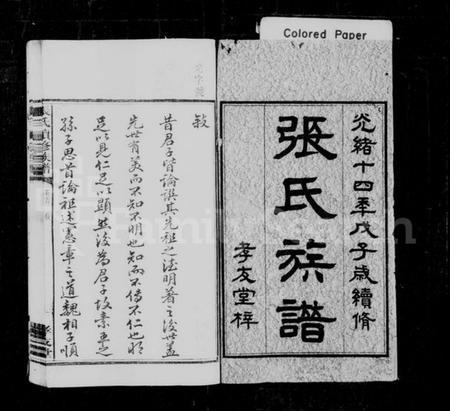 Colored Paper
光緒十四年戊子歲續脩
張氏族譜
孝友堂梓
敍
昔君子皆論譔其先祖之德明著之後世蓋
先世有美而不知不明也知而不傳不仁也明
足以見仁足以顯然後為君子故素王之
孫子思首論祖述憲章之道魏相子順